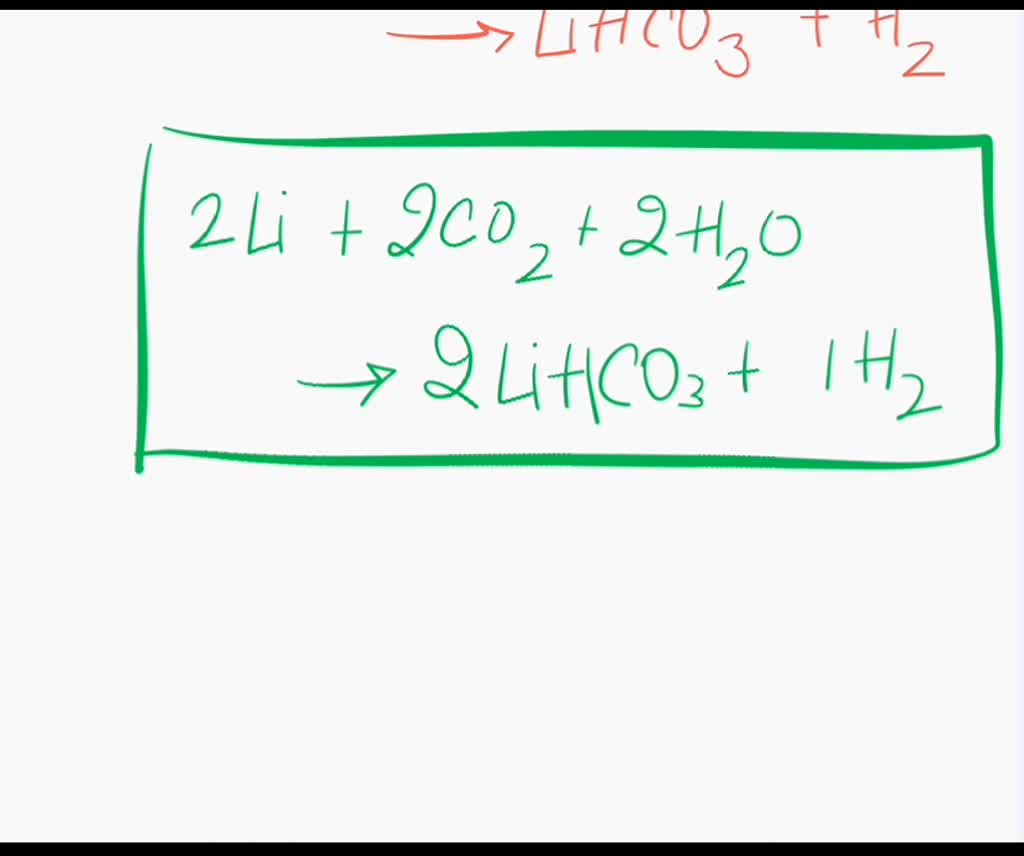 → LiHCO₃ + H₂
2Li + 2CO₂ + 2H₂O
→ 2LiHCO₃ + 1H₂